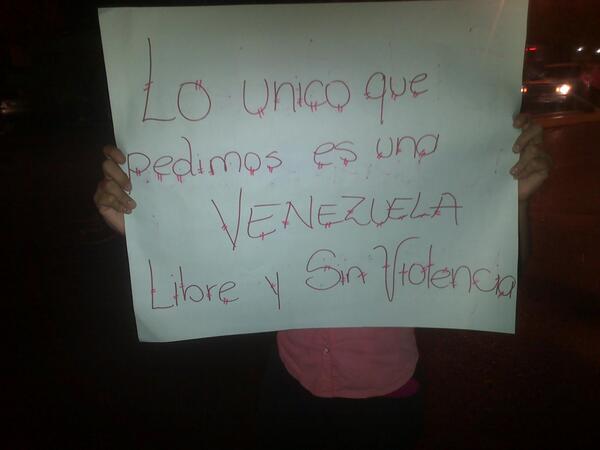 Lo unico que
pedimos es una
VENEZUELA
Libre y Sin Violencia